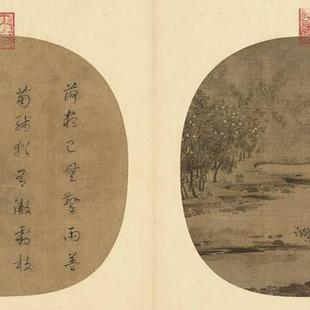 荷盡已無擎雨蓋
菊殘猶有傲霜枝